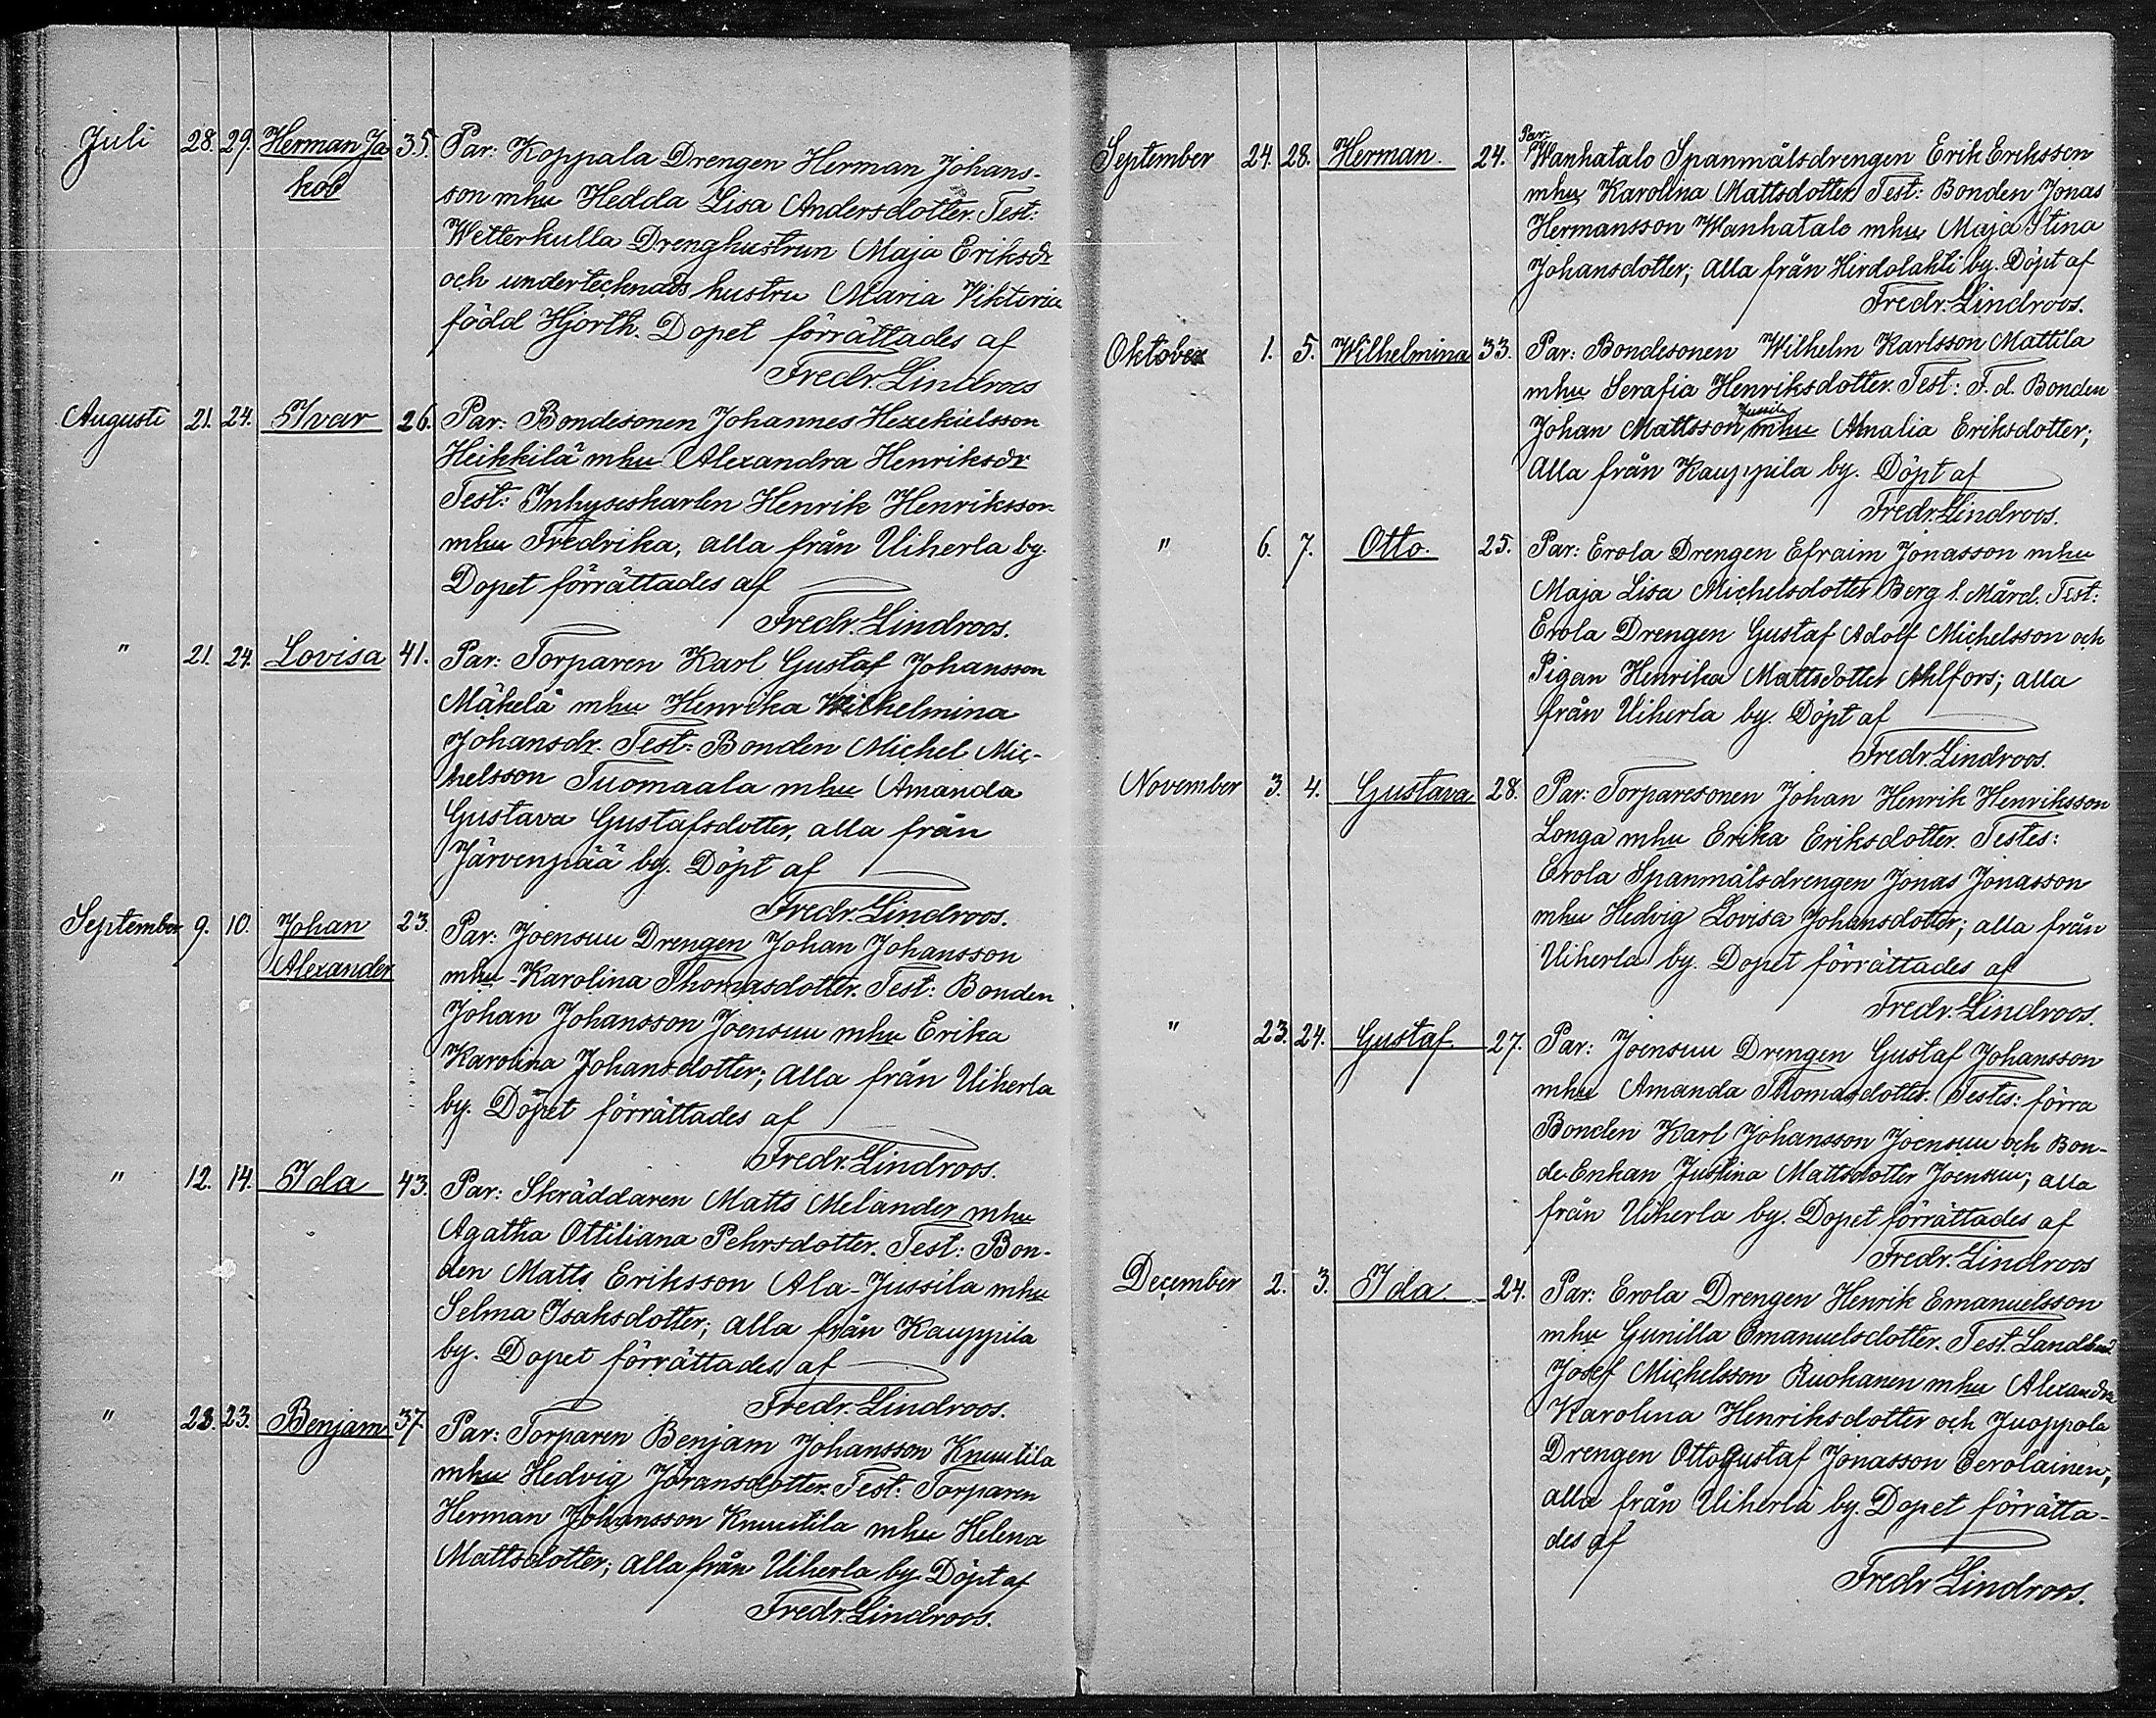 Juli 28. 29. Herman Ja 35. Par: Koppala Drengen Herman Johans-
kob son mhu Hedda Lisa Andersdotter. Test:
Wetterkulla Drenghustrun Maja Eriksdr
och undertecknads hustru Maria Viktoria
född Hjorth. Dopet förrättades af
Fredr. Lindroos
Augusti 21. 24. Ivar 26. Par: Bondesonen Johannes Hezekielsson
Heikkilä mhu Alexandra Henriksdr
Test: Inhyseskarlen Henrik Henriksson
mhu Fredrika, alla från Uiherla by.
Dopet förrättades af
Fredr. Lindroos.
" 21. 24. Lovisa 41. Par: Torparen Karl Gustaf Johansson
Mäkelä mhu Henrika Wilhelmina
Johansdr. Test: Bonden Michel Mic-
helsson Tuomaala mhu Amanda
Gustava Gustafsdotter, alla från
Järvenpää by. Döpt af
Fredr. Lindroos.
September 9. 10. Johan 23. Par: Joensuu Drengen Johan Johansson
Alexander mhu Karolina Thomasdotter. Test: Bonden
Johan Johansson Joensuu mhu Erika
Karolina Johansdotter; alla från Uiherla
by. Dopet förrättades af
Fredr. Lindroos.
" 12. 14. Ida 43. Par: Skräddaren Matts Melander mhu
Agatha Ottiliana Pehrsdotter. Test: Bon-
den Matts Eriksson Ala-Jussila mhu
Selma Isaksdotter; alla från Kauppila
by. Dopet förrättades af
Fredr. Lindroos.
" 23. 23. Benjam 37. Par: Torparen Benjam Johansson Knuutila
mhu Hedvig Göransdotter. Test: Torparen
Herman Johansson Knuutila mhu Helena
Mattsdotter; alla från Uiherla by. Döpt af
Fredr. Lindroos.
September 24. 28. Herman 24. Par: Wanhatalo Spanmålsdrengen Erik Eriksson
mhu Karolina Mattsdotter Test: Bonden Jonas
Hermansson Wanhatalo mhu Maja Stina
Johansdotter; alla från Hirdolahti by. Döpt af
Fredr. Lindroos.
Oktober 1. 5. Wilhelmina 33. Par: Bondesonen Wilhelm Karlsson Mattila
mhu Serafia Henriksdotter. Test: F.d. Bonden
Johan Mattsson Jussila mhu Amalia Eriksdotter;
alla från Kauppila by. Döpt af
Fredr. Lindroos.
" 6. 7. Otto. 25. Par: Erola Drengen Efraim Jonasson mhu
Maja Lisa Michelsdotter Berg l. Mård. Test:
Erola Drengen Gustaf Adolf Michelsson och
Pigan Henrika Mattsdotter Ahlfors; alla
från Uiherla by. Döpt af
Fredr. Lindroos.
November 3. 4. Gustava 28. Par: Torparesonen Johan Henrik Henriksson
Longa mhu Erika Eriksdotter. Testes:
Erola Spanmålsdrengen Jonas Jonasson
mhu Hedvig Lovisa Johansdotter; alla från
Uiherla by. Dopet förrättades af
Fredr. Lindroos.
" 23. 24. Gustaf. 27. Par: Joensuu Drengen Gustaf Johansson
mhu Amanda Thomasdotter. Testes: förra
Bonden Karl Johansson Joensuu och Bon-
de-Enkan Justina Mattsdotter Joensuu; alla
från Uiherla by. Dopet förrättades af
Fredr. Lindroos
December 2. 3. Ida 24. Par: Erola Drengen Henrik Emanuelsson
mhu Gunilla Emanuelsdotter. Test. Landbond
Josef Michelsson Ruohanen mhu Alexandra
Karolina Henriksdotter och Juoppola
Drengen Otto Gustaf Jonasson Eerolainen,
alla från Uiherla by. Dopet förrätta-
des af
Fredr Lindroos.